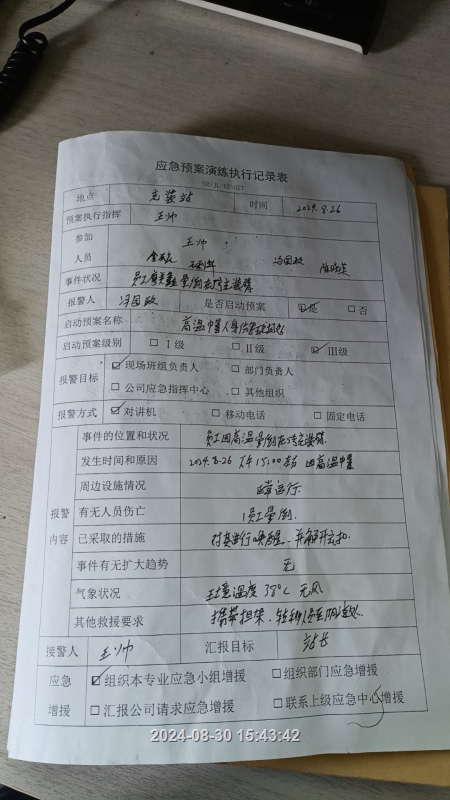 应急预案演练执行记录表
地点 充装站 时间 2024.8.26
预案执行指挥 王帅
参加 王帅
人员 冯国政
事件状况 员工 晕倒在 充装
报警人 冯国政 是否启动预案 ☑是 □否
启动预案名称 高温中暑人身伤害
启动预案级别 □Ⅰ级 □Ⅱ级 ☑Ⅲ级
报警目标 ☑现场班组负责人 □部门负责人
□公司应急指挥中心 □其他组织
报警方式 ☑对讲机 □移动电话 □固定电话
报警内容
事件的位置和状况 员工因高温晕倒在 充装
发生时间和原因 2024.8.26 下午15:00左右 因高温中暑
周边设施情况 正常运行
有无人员伤亡 1员工晕倒.
已采取的措施 对其进行唤醒, 并解开衣扣
事件有无扩大趋势 无
气象状况 环境温度 38℃ 无风
其他救援要求 携带担架,
接警人 王帅 汇报目标 站长
应急 ☑组织本专业应急小组增援 □组织部门应急增援
增援 □汇报公司请求应急增援 □联系上级应急中心增援
2024-08-30 15:43:42